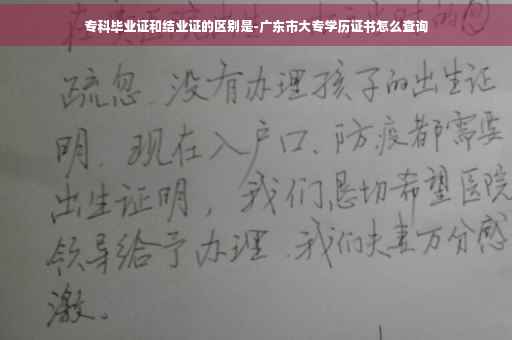 专科毕业证和结业证的区别是-广东市大专学历证书怎么查询
疏忽、没有办理孩子的出生证
明、现在入户口、防疫都需要
出生证明，我们恳切希望医院
领导给予办理、我们夫妻万分感
激。